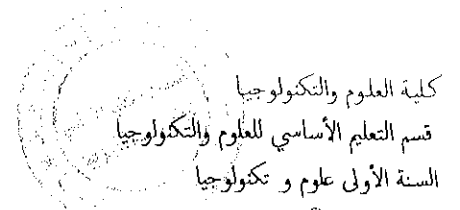 كلية العلوم والتكنولوجيا
قسم التعليم الأساسي للعلوم والتكنولوجيا
السنة الأولى علوم و تكنولوجيا